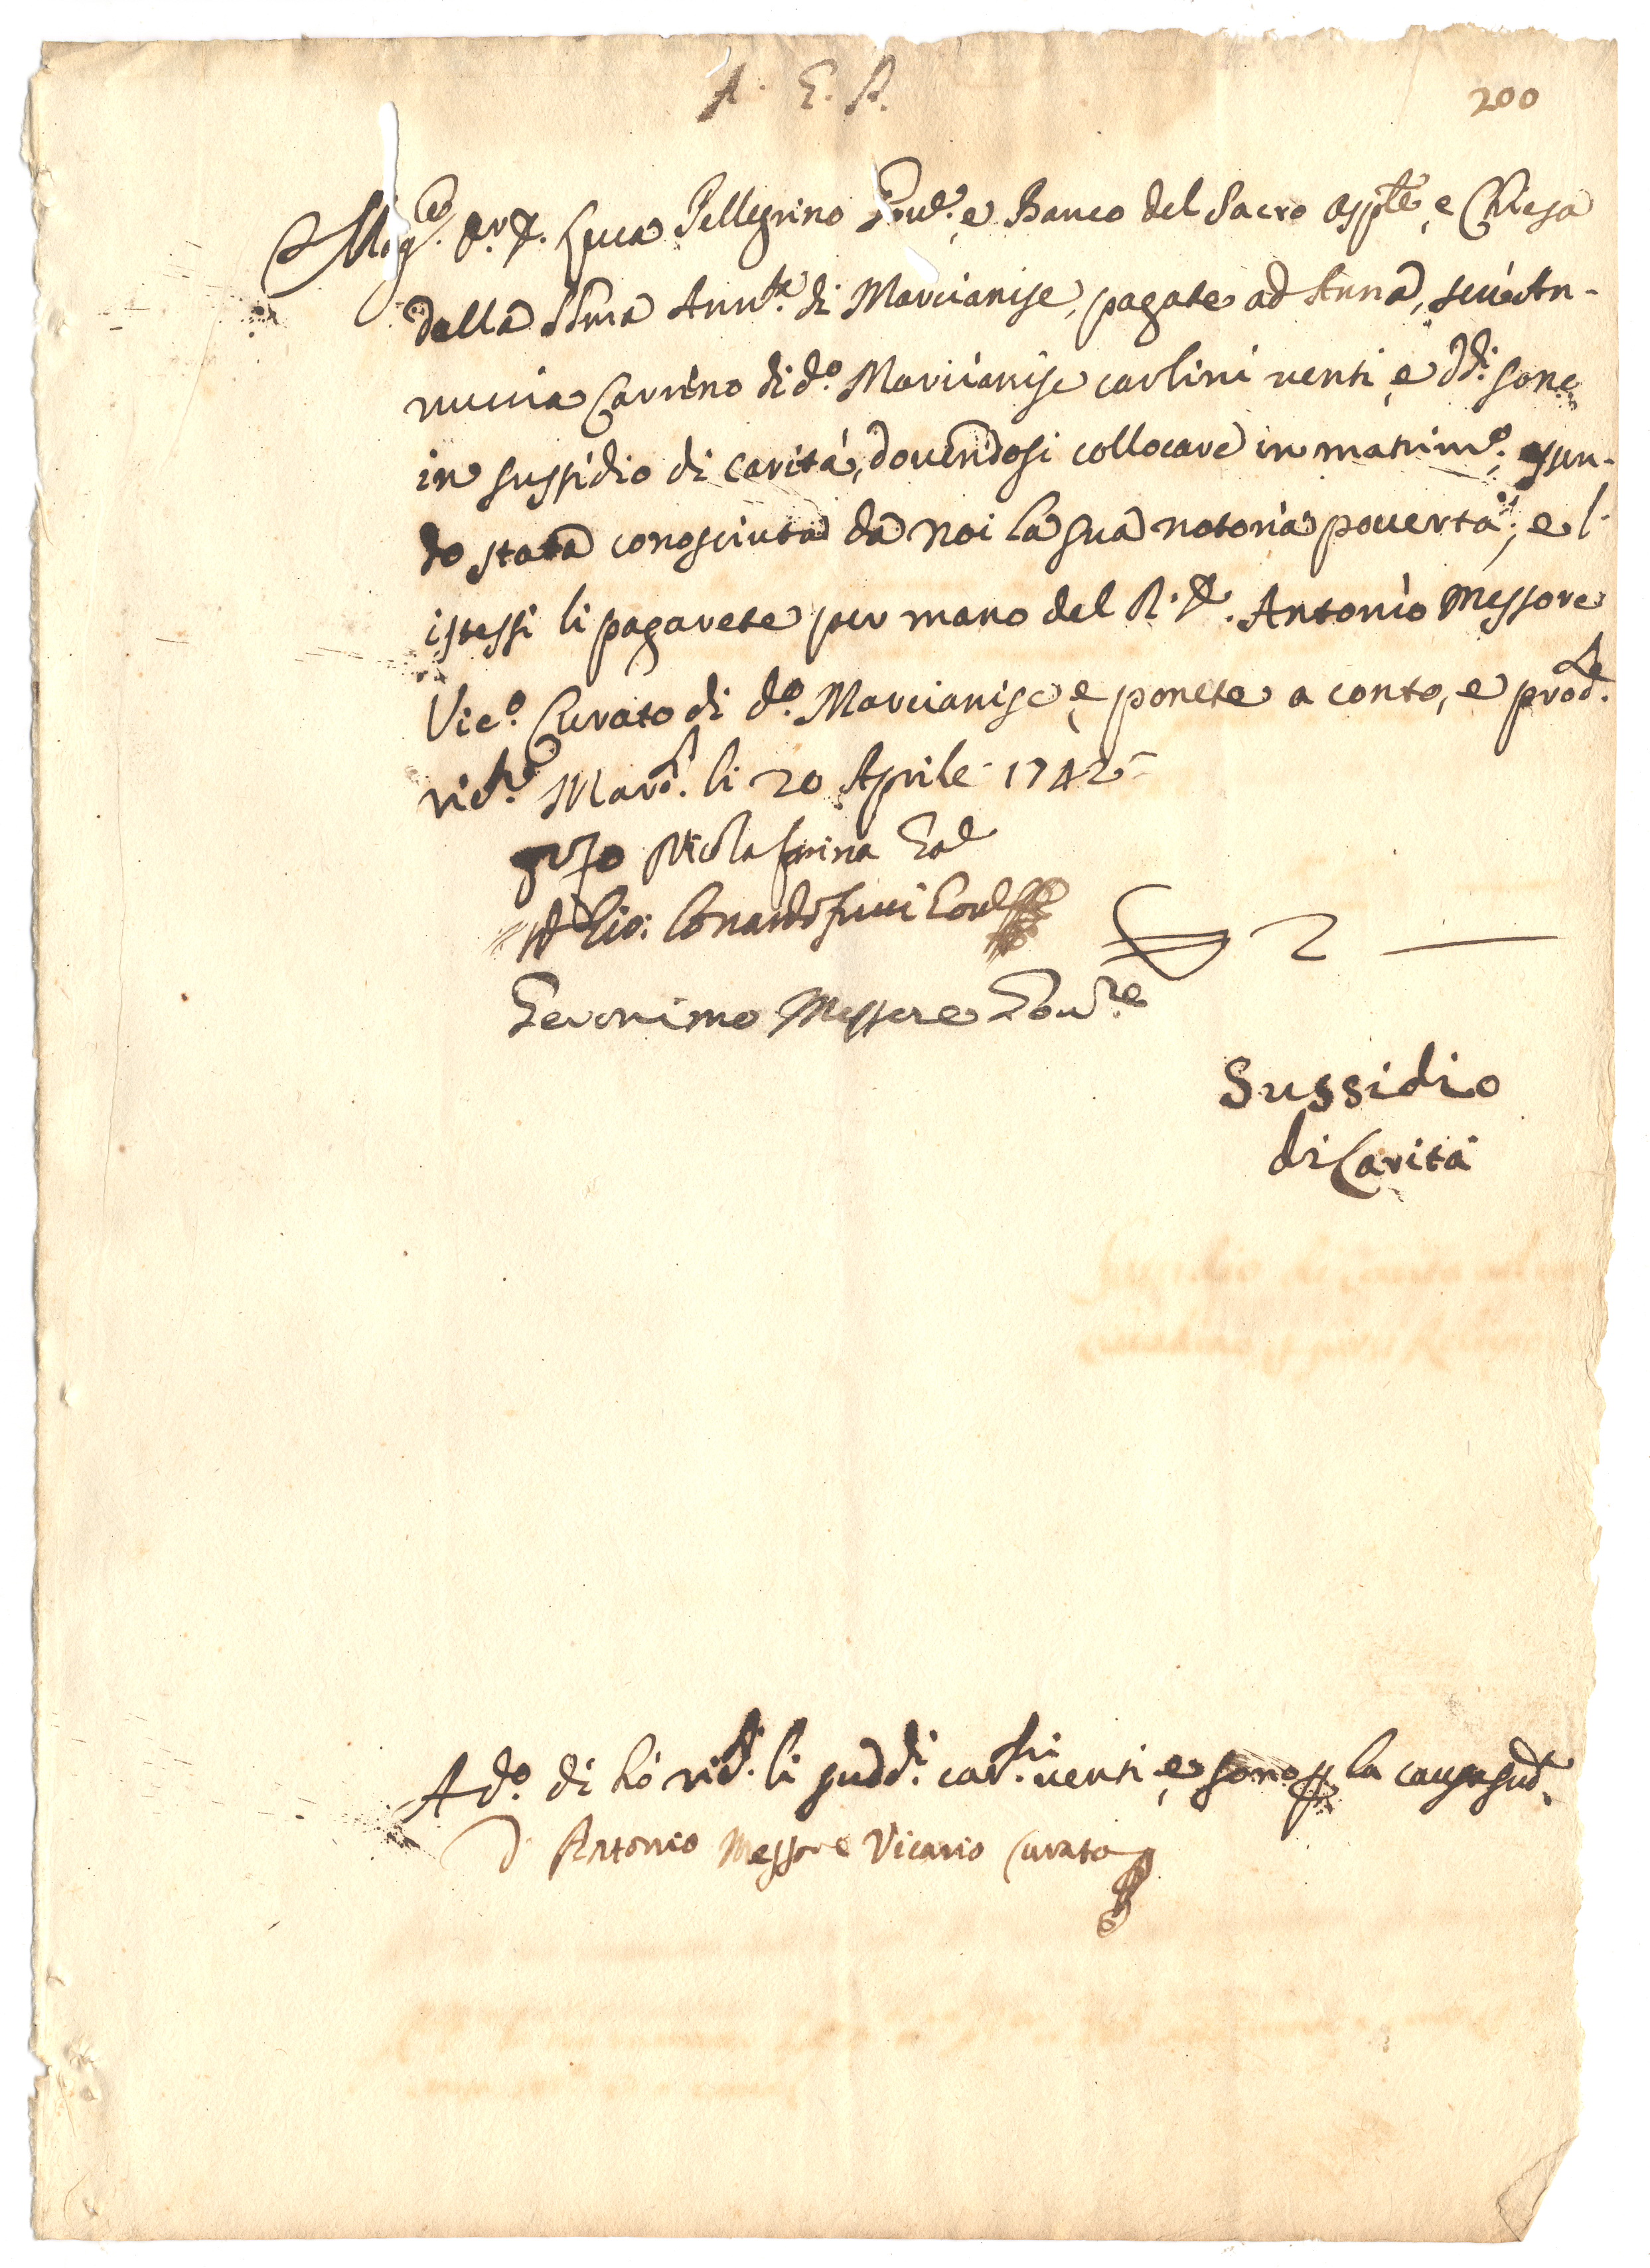 A. G. P.
200
Mag.co Dr. D. Luca Pellegrino e Banco del Sacro Osp.le, e Chiesa
della SSma Ann.ta di Marcianise, pagate ad Anna, seù An-
nuccia Carrino di d.o Marcianise carlini venti, e dd.i sono
in sussidio di carità, dovendosi collocare in matrim.o, essen-
do stata conosciuta da noi la sua notoria povertà; e l'
istessi li pagarete per mano del R. D. Antonio Messore
Vic.o Curato di d.o Marcianise, e ponete a conto, e
Marc. li 20 Aprile 1742
Nicola
D. Gio: Gov.
Geronimo Messore Gov.re
2 —
Sussidio
di Carità
A d.o dì hò li sudd.i carlini venti, e sono la causa sud.
D. Antonio Messore Vicario Curato